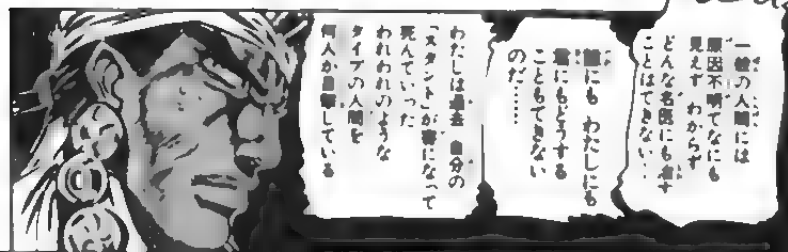 一般の人間には
原因不明でなにも
見えず わからず
どんな名医にも治す
ことはできない…
誰にも わたしにも
君にもどうする
こともできない
のだ……
わたしは過去 自分の
「スタンド」が害になって
死んでいった
われわれのような
タイプの人間を
何人か目撃している